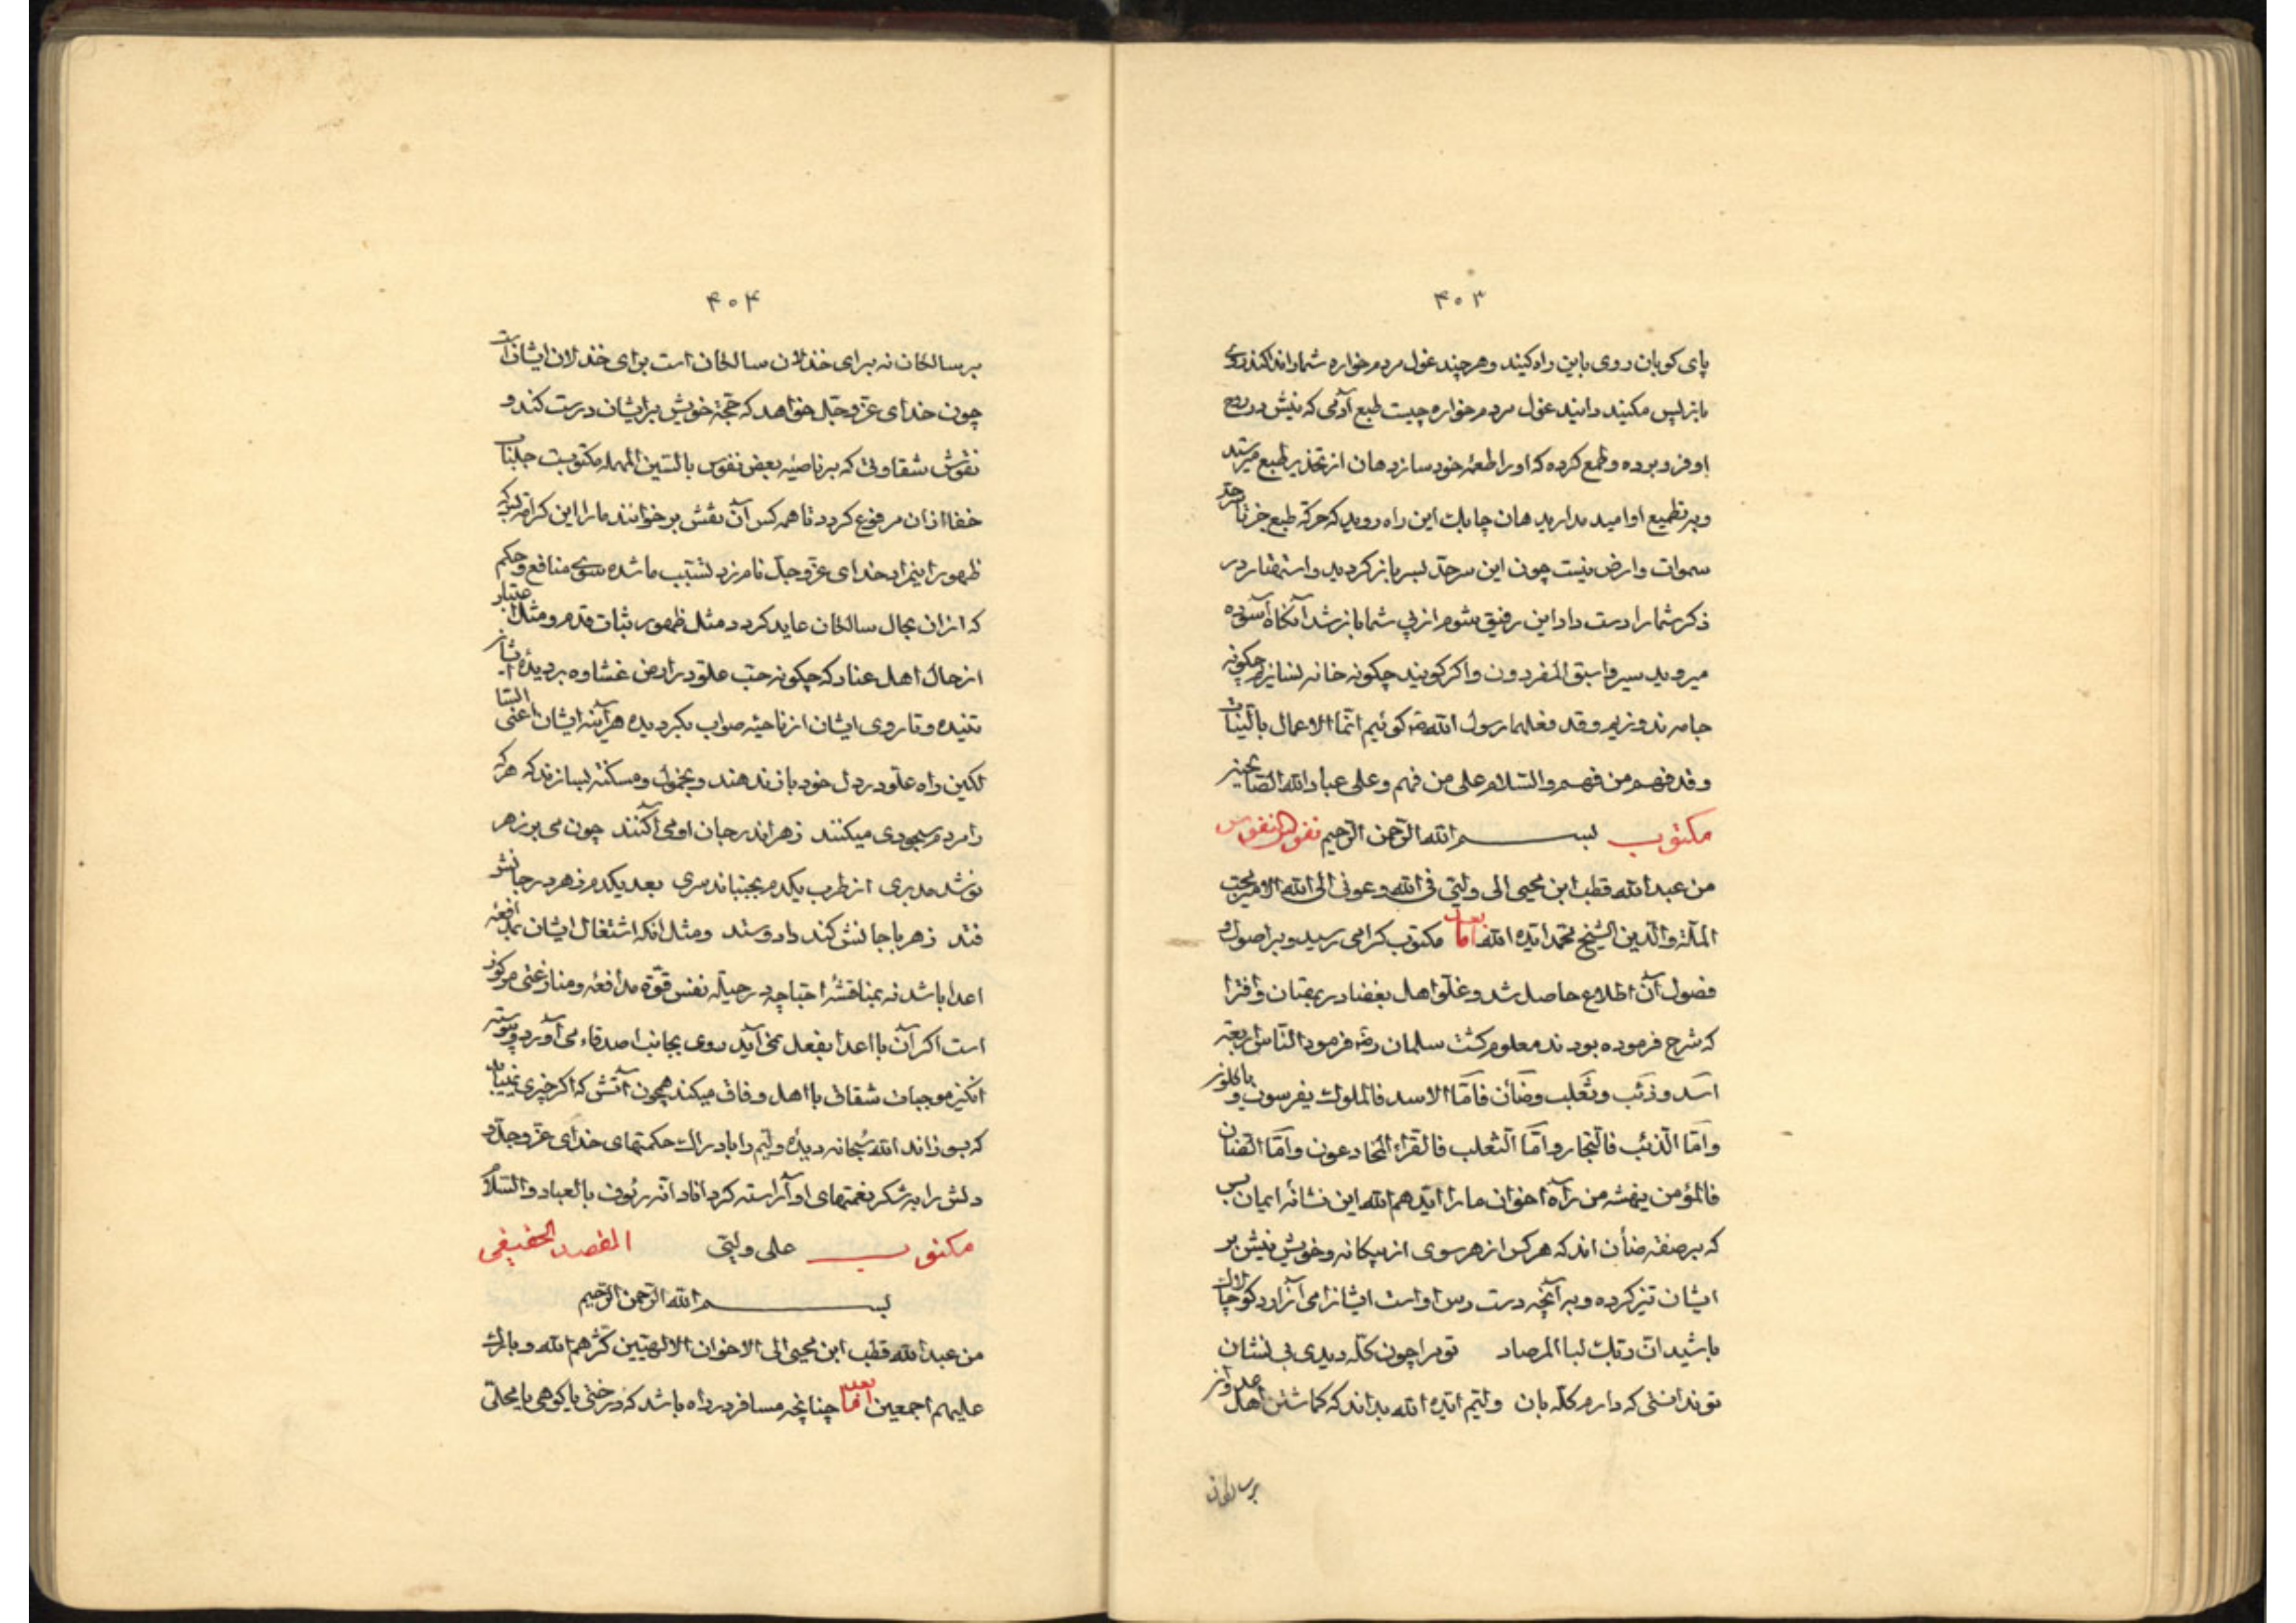 ۴۰۳
پای کوبان روی باین راه کنید و هر چند غول مردم خواره شما را ندا کند روی
باز پس مکنید دانید غول مردم خواره چیست طبع آدمی که نیش در روح
او فرو برده و طمع کرده که او را طعمهٔ خود سازد هان از تحذیر طبع مترسید
و به تطمیع او امید مدارید هان چابک این راه روید که حرکة طبع جز تا سرحد
سموات و ارض نیست چون این سرحد بسر باز کردید و استهتار در
ذکر شما را دست داد این رفیق شوم از پی شما باز شد آنکاه آسوده
میروید سیروا سبق المفردون و اکر کویند چکونه خانه نسازیم چکونه
جامه ندوزیم و قد فعلهما رسول الله ص کوئیم انما الاعمال بالنیات
و قد فهم من فهم و السلام علی من فهم و علی عباد الله الصالحین
مکتوب بسم الله الرحمن الرحیم نقوش النفوس
من عبد الله قطب ابن محیی الی ولیی فی الله و عونی الی الله الامیر محب
الملة و الدین الشیخ محمد ایده الله اما بعد مکتوب کرامی رسید و بر اصول و
فصول آن اطلاع حاصل شد و غلو اهل بغضا در بهتان و افترا
که شرح فرموده بودند معلوم کشت سلمان رض فرمود الناس اربعة
اسد و ذئب و ثعلب و ضأن فاما الاسد فالملوک یفرسون و یاکلون
و اما الذئب فالتجار و اما الثعلب فالقراء المخادعون و اما الضان
فالمؤمن ینهشه من رآه اخوان ما را ایدهم الله این نشانهٔ ایمان بس
که بر صفة ضأن اند که هر کس از هر سوی از بیکانه و خویش نیش بر
ایشان تیز کرده و به آنچه دست رس او است ایشانرا می آزارد کو چالاک
باشید ان ربک لبا المرصاد تو مرا چون کله دیدی بی نشان
تو ندانستی که دارم کله بان ولیم ایده الله بداند که کماشتن اهل عدوان
بر سالخان
۴۰۴
بر سالخان نه برای خذلان سالخان است برای خذلان ایشان است
چون خدای عز و جل خواهد که حجة خویش بر ایشان درست کند و
نقوش شقاوتی که بر ناصیهٔ بعض نفوس بالسین المهمله مکتوبست جلباب
خفا از ان مرفوع کردد تا همه کس آن نقش بر خوانند ما را این کرامة بس که
ظهور را بنزد خدای عز و جل نامزد تسبب ما شده سوی منافع و حکم
که از ان بحال سالخان عاید کردد مثل ظهور ثبات قدم و مثل اعتبار
از حال اهل عناد که چکونه حب علو در ارض غشاوه بر دیدهٔ ایشان
تنیده و تا روی ایشان از ناحیهٔ صواب بکردیده هر آینه ایشان اعنی السا
لکین راه علو در دل خود باز ندهند و بخمول و مسکنة بسازند که هر که
را مردم سجودی میکنند زهر اندر جان او می آکنند چون می بر زهر
نوشد مدبری از طرب یکدم بجنباند سری بعد یکدم زهر در جانش
فتد زهر با جانش کند داد و ستد و مثل انکه اشتغال ایشان بمدافعهٔ
اعدا باشد نه بمناقشهٔ احبا چه در حیلهٔ نفس قوهٔ مدافعه و منازعتی مرکوز
است اکر آن با اعدا بفعل نمی آید روی بجانب اصدقاء می آورد و پیوسته
انکیز موجبات شقاق با اهل وفاق میکند همچون آتش که اکر چیزی نمییابد
که بسوزاند الله سبحانه دیدهٔ ولیم را بادراک حکمتهای خدای عز و جل و
دلش را به شکر نعمتهای او آراسته کرداناد انه رئوف بالعباد و السلام
مکتوب علی ولیی المقصد الحقیقی
بسم الله الرحمن الرحیم
من عبد الله قطب ابن محیی الی الاخوان الالهیین کثرهم الله و بارک
علیهم اجمعین اما بعد چنانچه مسافر در راه باشد که درختی یا کوهی یا محلتی